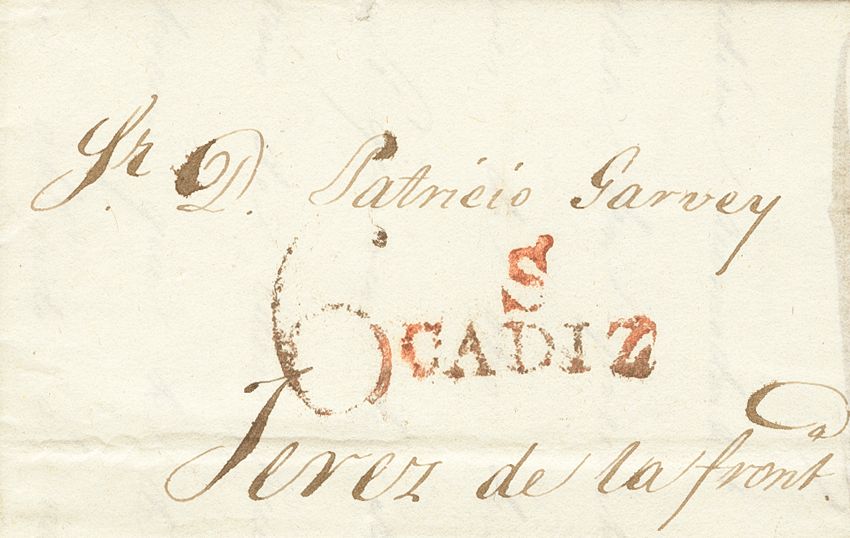 Sr. D. Patricio Garvey
6 S
CADIZ
Jerez de la front.ª